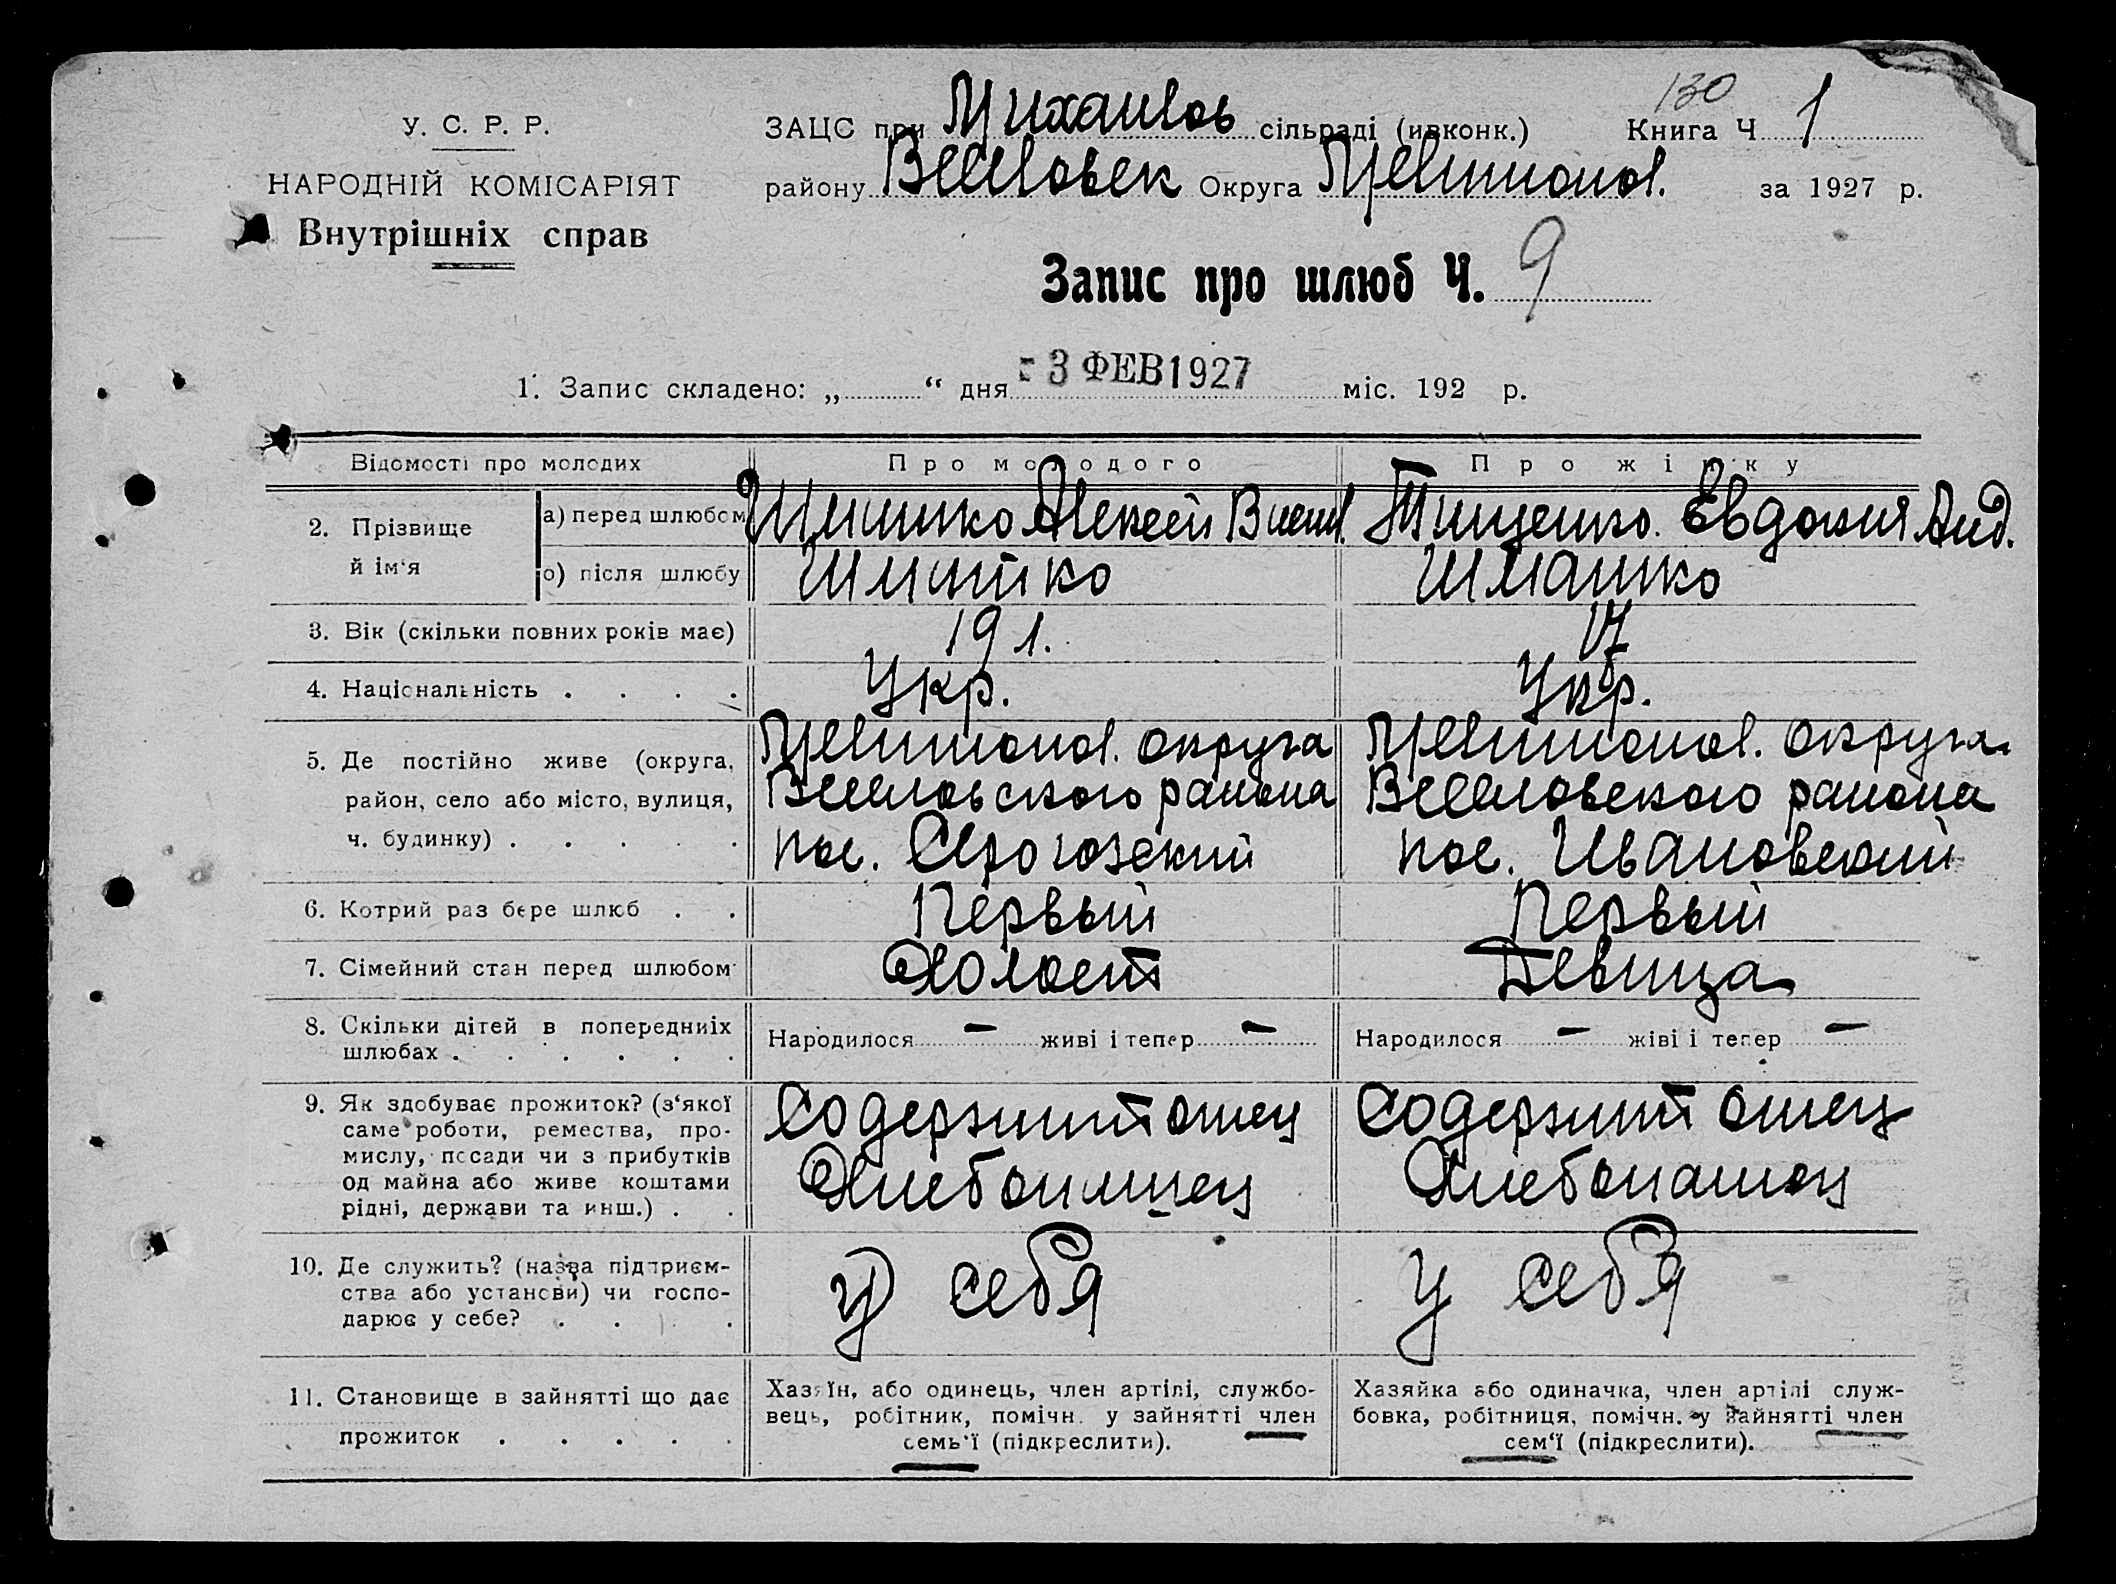 130
У. С. Р. Р.
НАРОДНІЙ КОМІСАРІЯТ
Внутрішніх справ
ЗАЦС при Михайлов сільраді (ивконк.) Книга Ч 1
району Веселовск Округа Мелитопол. за 1927 р.
Запис про шлюб Ч. 9
1. Запис складено: „ “ дня - 3 ФЕВ 1927 міс. 192 р.
Відомості про молодих Про молодого Про жінку
2. Прізвище й ім‘я
а) перед шлюбом Алексей Тищенко. Евдокия Анд.
о) після шлюбу Шмашко
3. Вік (скільки повних років має) 19 л. 17
4. Національність . . . . Укр. Укр.
5. Де постійно живе (округа, район, село або місто, вулиця, ч. будинку) . . . . .
Мелитопол. округа
Веселовского района
пос. Серогозский
Мелитопол. округа
Веселовского района
пос. Ивановский
6. Котрий раз бере шлюб . . Первый Первый
7. Сімейний стан перед шлюбом Холост Девица
8. Скільки дітей в попередниіх шлюбах . . . . . .
Народилося — живі і тепер — Народилося — жіві і тепер —
9. Як здобуває прожиток? (з‘якої
саме роботи, ремества, про-
мислу, посади чи з прибутків
од майна або живе коштами
рідні, держави та инш.) . .
Содержит отец
Хлебопашец
Содержит отец
Хлебопашец
10. Де служить? (назва підприєм-
ства або установи) чи госпо-
дарює у себе? . . . .
у себя у себя
11. Становище в зайнятті що дає
прожиток . . . . .
Хазяїн, або одинець, член артілі, службо-
вець, робітник, помічн. у зайнятті член
семь‘ї (підкреслити).
Хазяйка або одиначка, член артілі служ-
бовка, робітниця, помічн. у зайнятті член
сем‘ї (підкреслити).